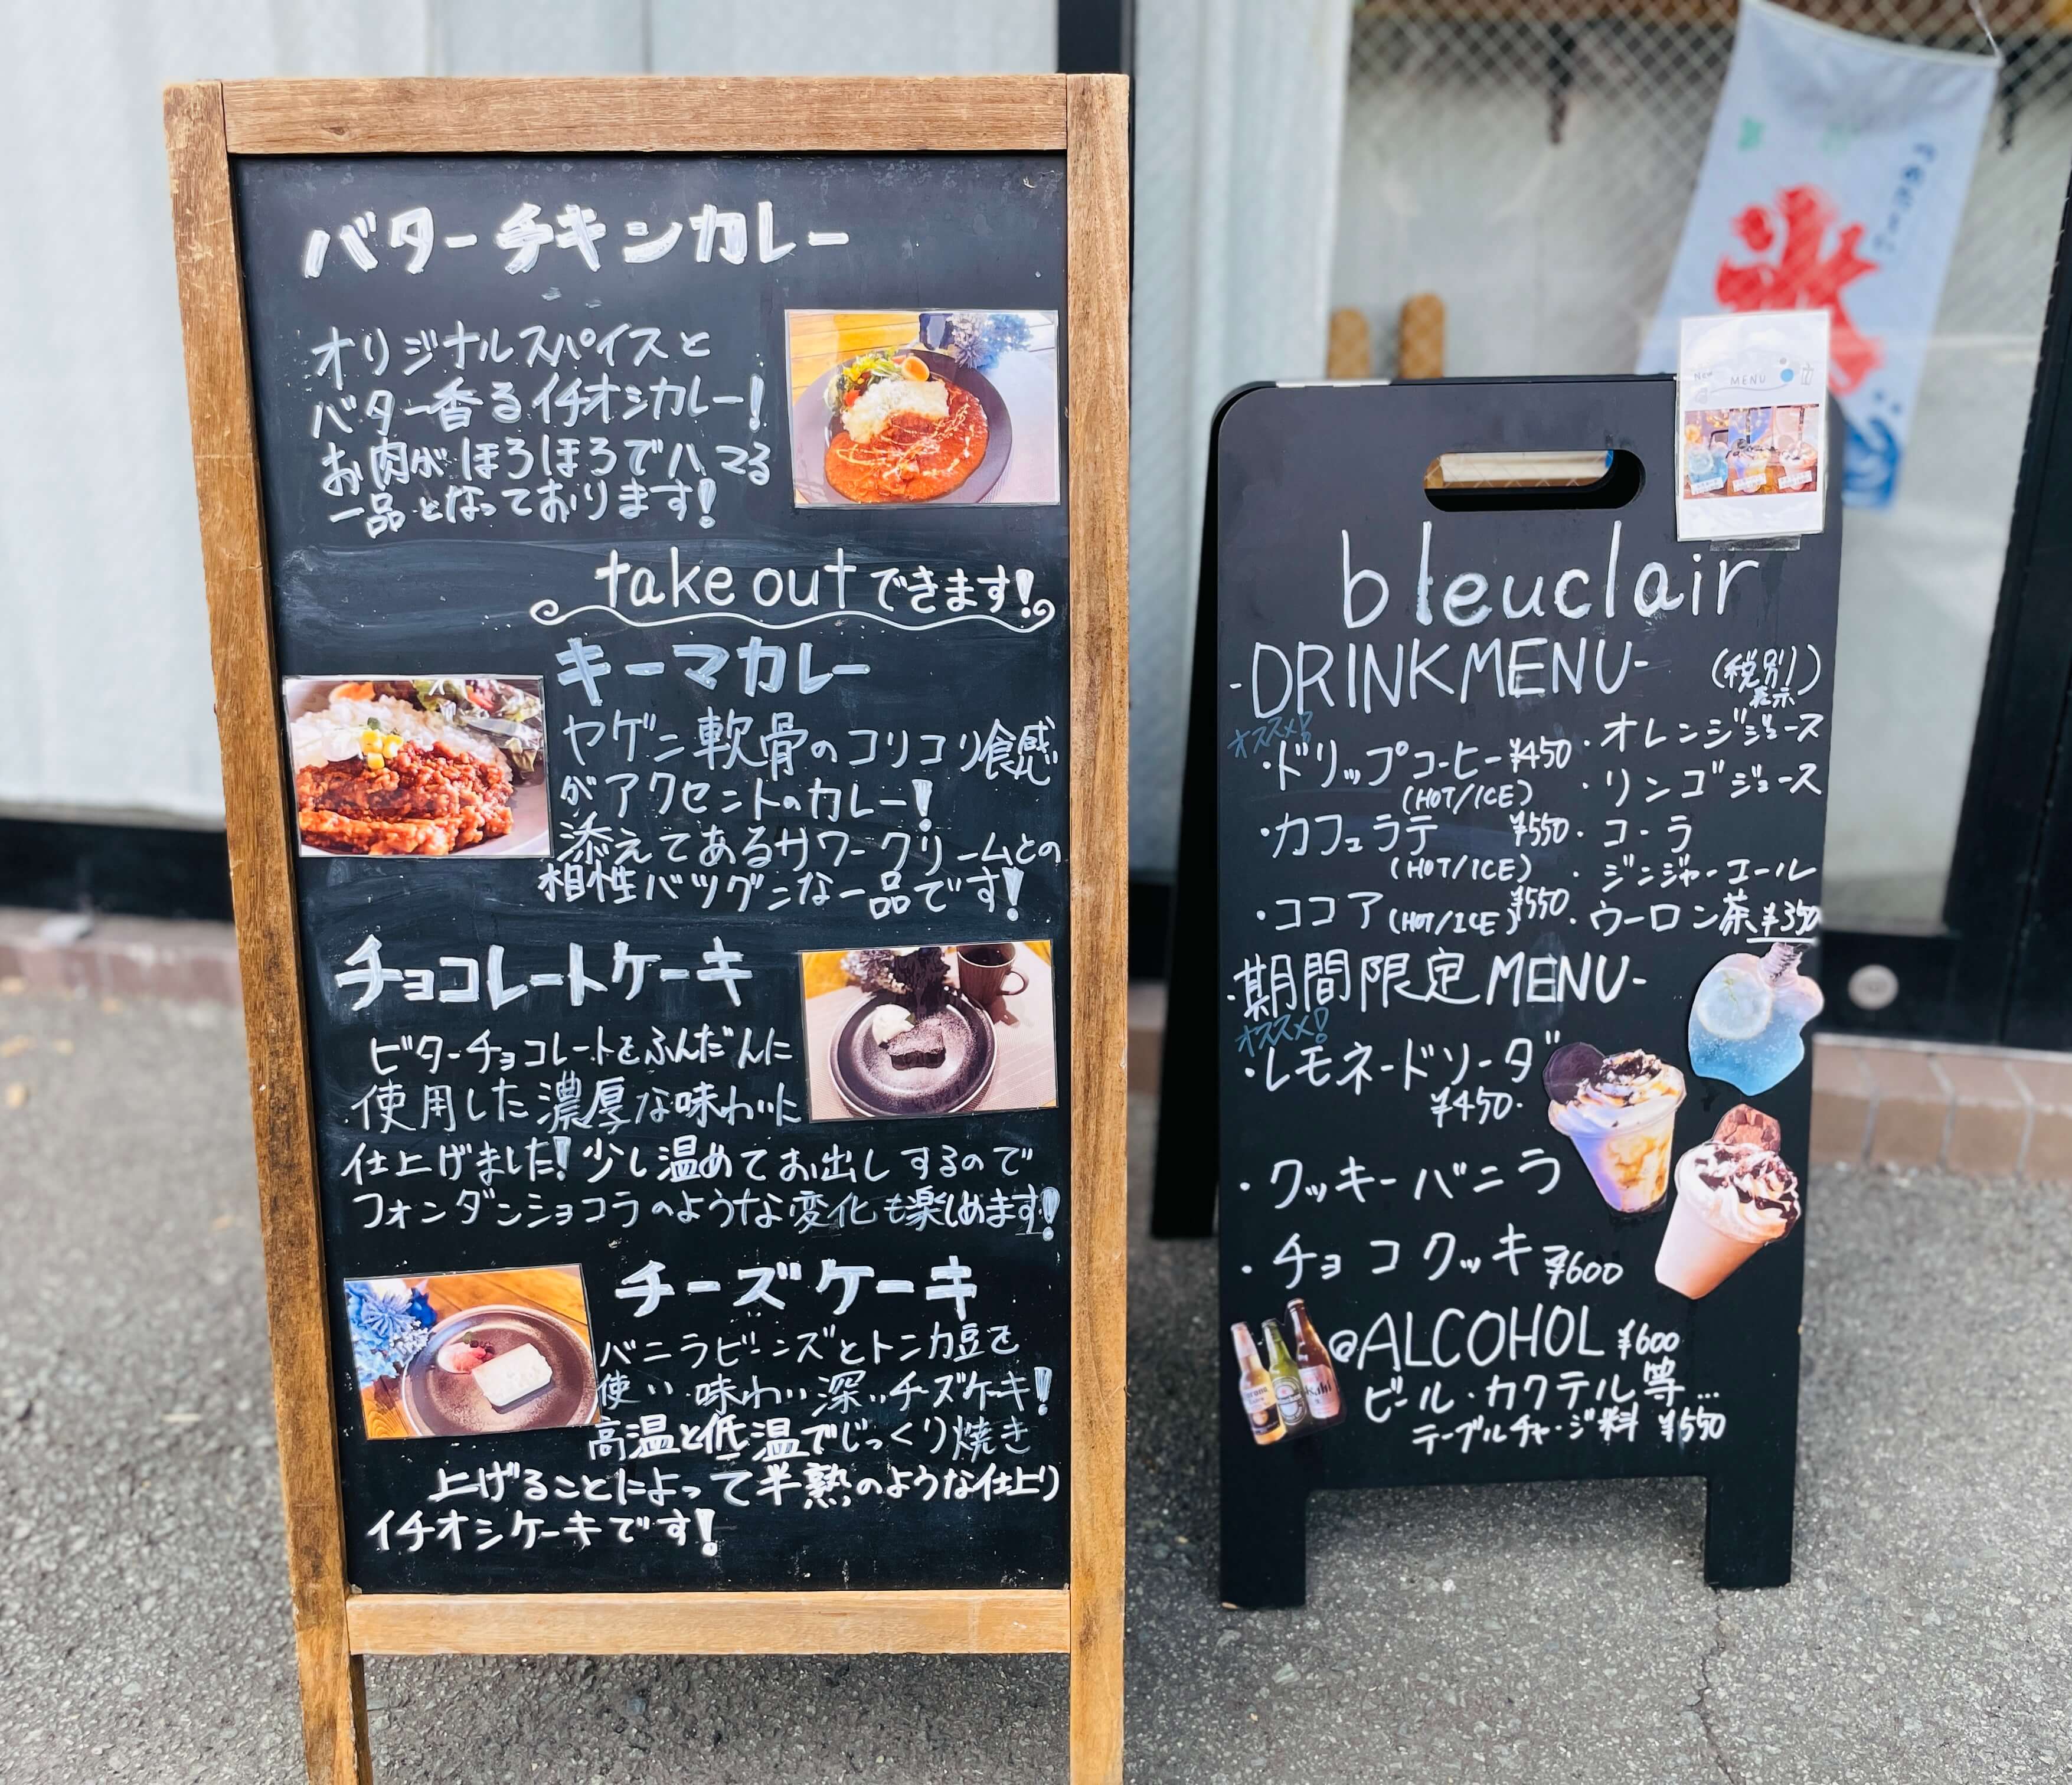 バターチキンカレー
オリジナルスパイスと
バター香るイチオシカレー!
お肉がほろほろでハマる
一品となっております!
take outできます!
キーマカレー
ヤゲン軟骨のコリコリ食感
がアクセントのカレー!
添えてあるサワークリームとの
相性バツグンな一品です!
チョコレートケーキ
ビターチョコレートをふんだんに
使用した濃厚な味わいに
仕上げました!少し温めてお出しするので
フォンダンショコラのような変化も楽しめます!
チーズケーキ
バニラビーンズとトンカ豆を
使い味わい深いチーズケーキ!
高温と低温でじっくり焼き
上げることによって半熟のような仕上り
イチオシケーキです!
氷
NEW
MENU
bleuclair
-DRINKMENU-
(税別)
表示
オススメ!
・ドリップコーヒー ¥450
(HOT/ICE)
・カフェラテ ¥550
(HOT/ICE)
・ココア (HOT/ICE) ¥550
・オレンジジュース
・リンゴジュース
・コーラ
・ジンジャーエール
・ウーロン茶 ¥350
・期間限定MENU-
オススメ!
・レモネードソーダ
¥450.
・クッキーバニラ
・チョコクッキー ¥600
@ALCOHOL ¥600
ビール・カクテル等...
テーブルチャージ料 ¥550
Corona
Asahi